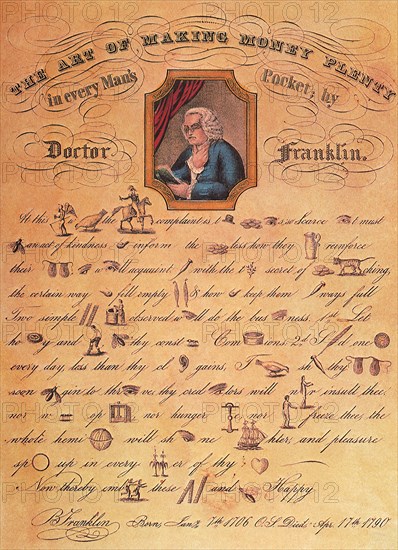 THE ART OF MAKING MONEY PLENTY
in every Man's Pocket; by
Doctor Franklin.
At this the complaint is t s so scarce t must
an act of kindness inform the less how they reinforce
their ll acquaint with the t secret of ching,
the certain way fill empty & how keep them ways full
Two simple observed w ll do the bus ness. 1st Let
ho y and thy const Com ions 2d d one
every day, less than thy cl gains, sh thy
soon gin to thr ve, thy cred tors will r insult thee,
nor w op nor hunger te, nor freeze thee, the
whole hemi will sh ne hter, and pleasure
sp up in every er of thy
Now thereby em these and Happy
B Franklin Born, Jany 7th 1706 O.S. Died Apr. 17th 1790
PHOTO12